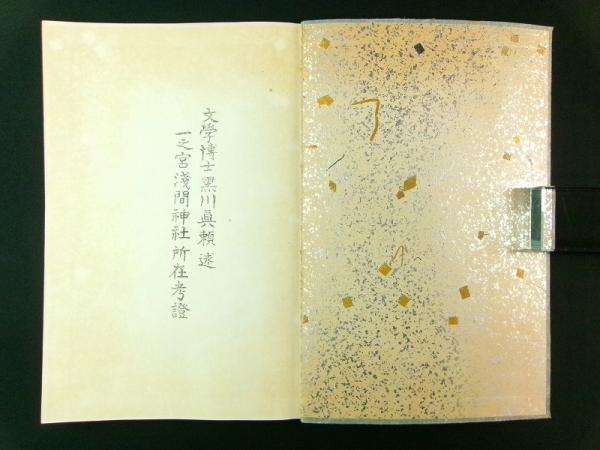 文學博士黑川眞頼述
一之宮淺間神社所在考證